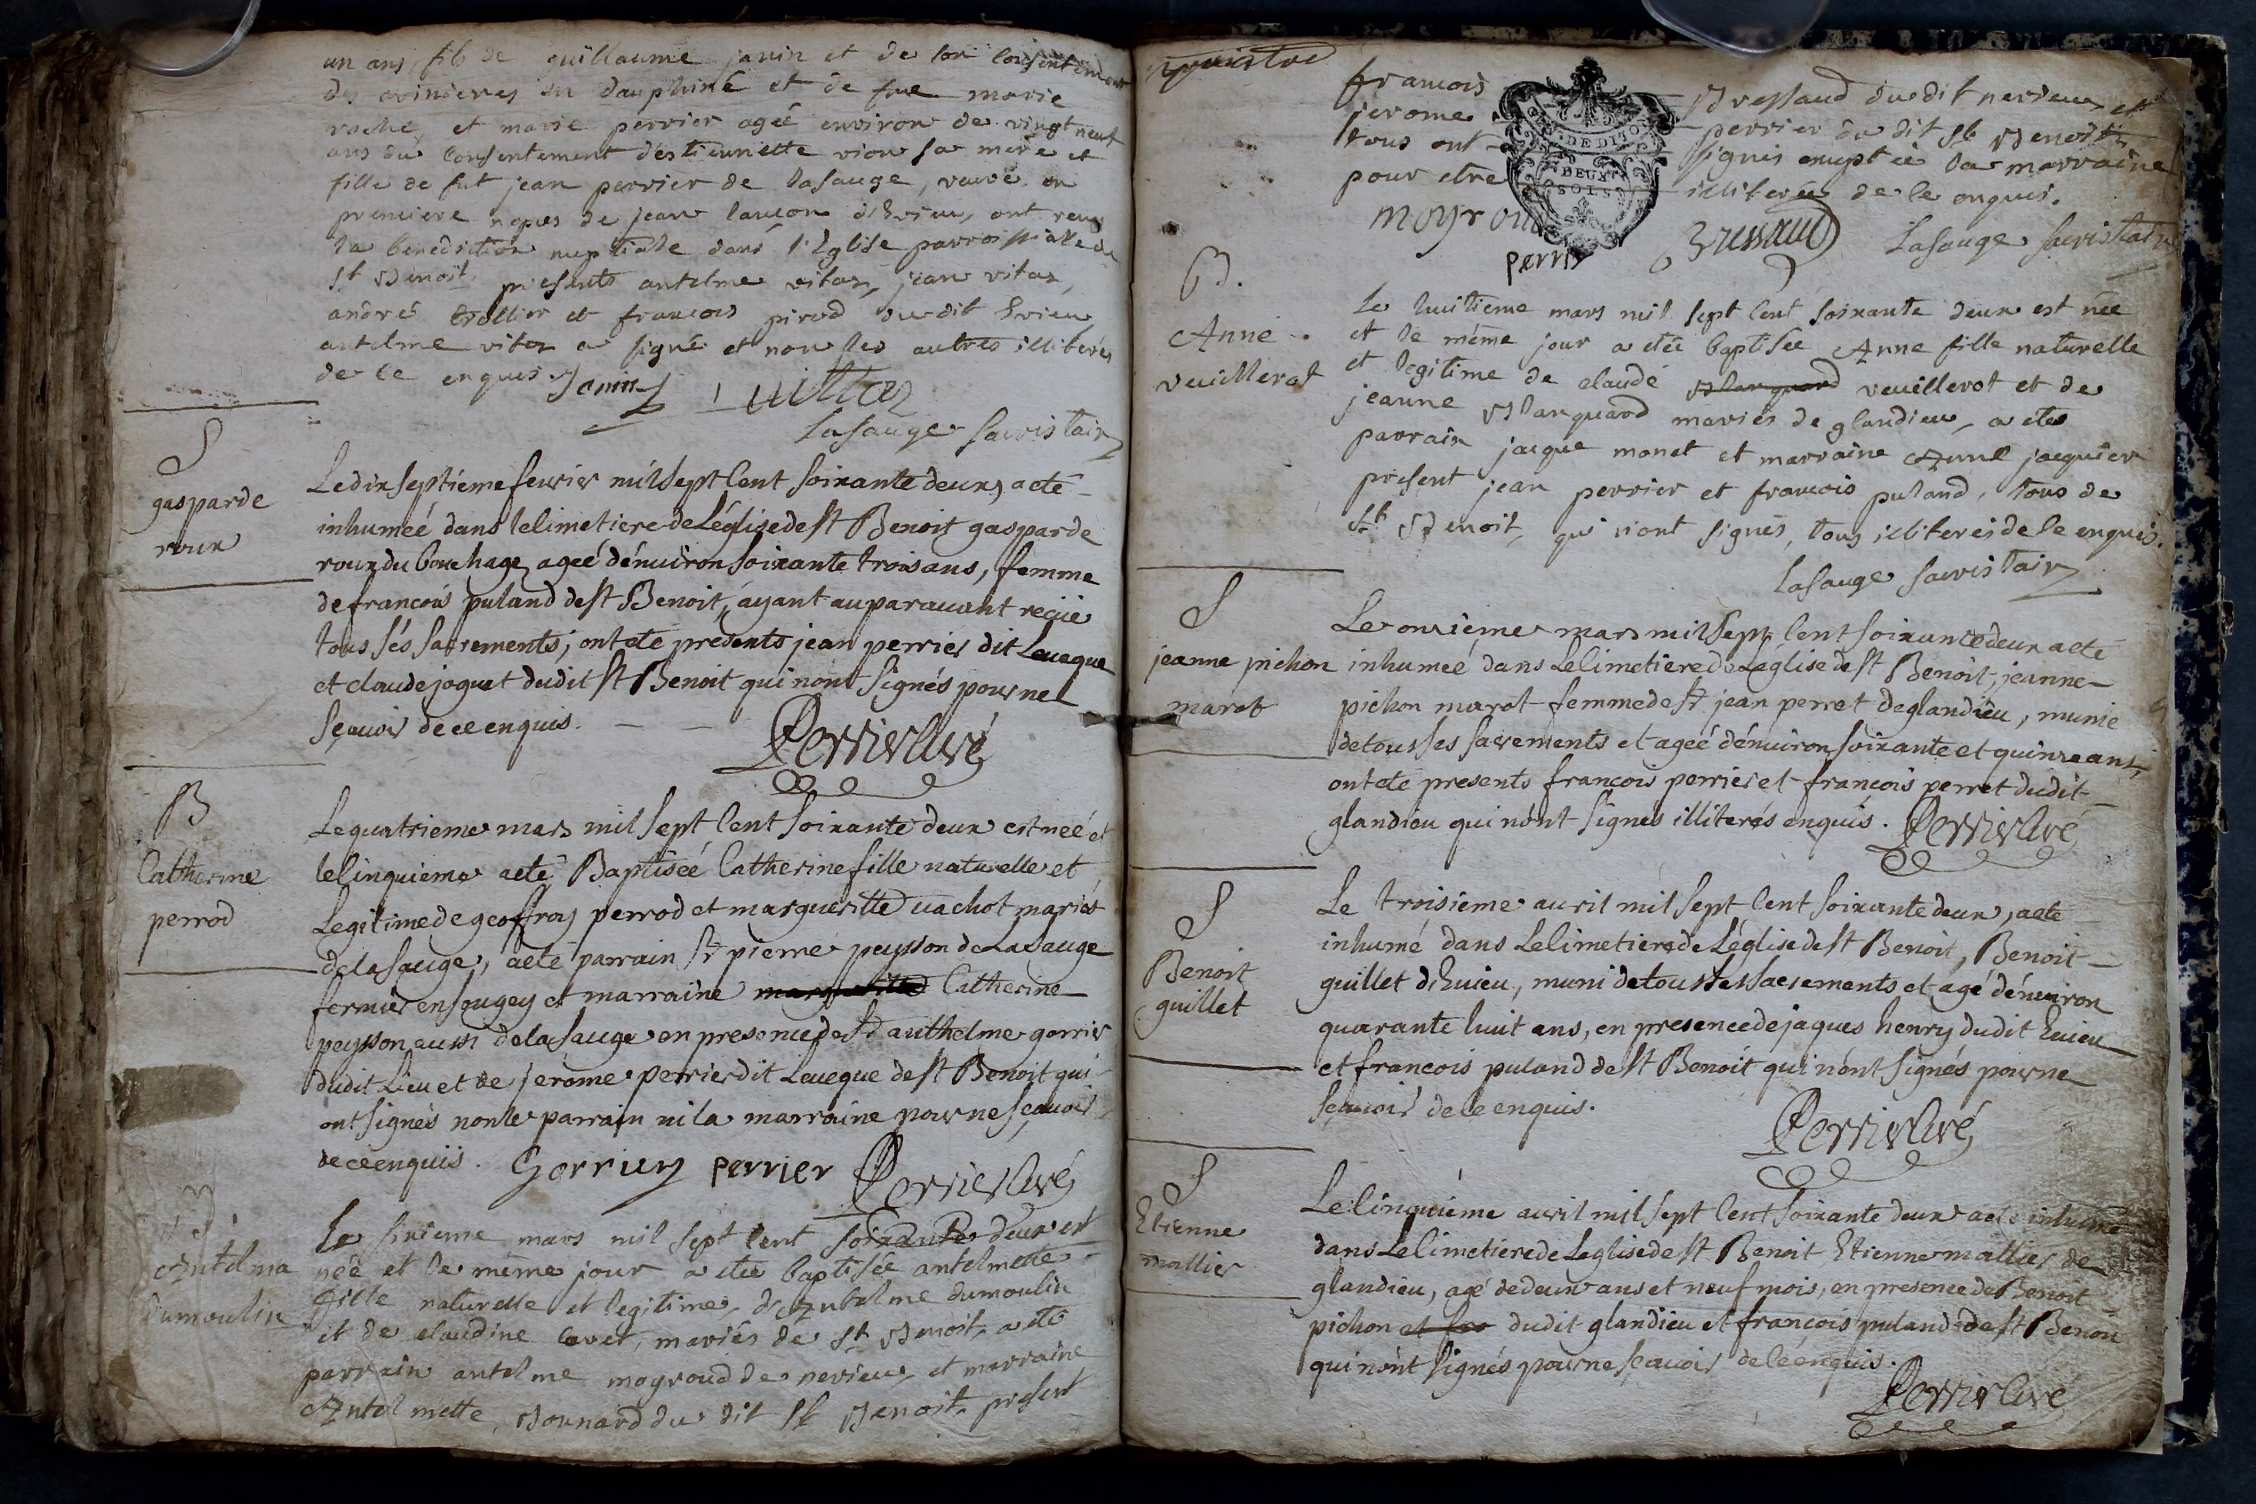 un ans, fils de guillaume janin et de son consentement
des avinieres en dauphiné et de feue marie
roche, et marie perrier agée environ de vingt neuf
ans du consentement destiennette vion sa mere et
fille de fut jean perrier de lasauge, veuve en
premiere nopces de jean lancon d'hvieu, ont reçus
la benediction nuptiale dans l'Eglise parroissiale de
st Benoit, presents antelme vitoz, jean vitoz,
andré trollier et francois pirod dudit hvieu
antelme vitoz a signé et non les autres illiterés
de ce enquis. Janin vittoz
Lasauge sacristain
S
gasparde
roux
Le dix septiéme feurier mil sept Cent soixante deux, a eté
inhumeé dans le Cimetiere de Léglise de st Benoit gasparde
roux du bouchage, ageé dénuiron soixante trois ans, femme
de francois puland de st Benoit, áyant auparauant reçue
tous sés sacrements; ont eté presents jean perrier dit Leueque
et claude joguet dudit st Benoit qui nont signés pour ne
sçauoir de ce enquis.
Perrier Curé
B
Catherine
perrod
Le quatrieme mars mil sept Cent soixante deux est neé et
le Cinquieme a eté Baptiseé Catherine fille naturelle et
Legitime de geoffroy perrod et margueritte vachot mariés
de la sauge, a eté parrain sr pierre peysson de La sauge
fermier en sougey et marraine margueritte Catherine
peysson aussi de la sauge en presence de sr anthelme gorrier
dudit Lieu et de jeröme perrier dit Leueque de st Benoit qui
ont signés non le parrain ni la marraine pour ne sçauoir
de ce enquis. Gorrier perrier Perrier Curé
B
Antelma
Dumoulin
Le sixieme mars mil sept cent soixante deux est
née et le même jour a etée baptisée antelmette
fille naturelle et legitime, d'Antelme dumoulin
et de claudine Cavet, mariés de st Benoit, a eté
parrain antelme moyroud de nerieu, et marraine
Antelmette, Bonnard du dit st Benoit, present
francois Bressaud du dit nerieu et
jerome perrier du dit st Benoit
tous ont signés exceptée la marraine
pour etre illiterée de ce enquis.
GEN. DE DIJON
DEUX
SOLS
moyroud Bressaud Lasauge sacristain
perrier
B.
Anne
veuillerot
Le huitieme mars mil sept Cent soixante deux est née
et le même jour a etée baptisée Anne fille naturelle
et legitime de claude Blanquard veuillerot et de
jeanne Blanquard mariés de glandieu, a etée
parrain jacque monet et marraine Anne jacquier
present jean perrier et francois puland, tous de
st Benoit, qui n'ont signés, tous illiterés de ce enquis.
Lasauge sacristain
S
jeanne pichon
marot
Le onzième mars mil sept Cent soixante deux a eté
inhumeé dans Le Cimetiere de Léglise de st Benoit, jeanne
pichon marot femme de sr jean perret de glandieu, munie
de tous ses sacrements et ageé dénuiron soixante et quinze ans,
ont eté presents françois perrier et françois perret dudit
glandieu qui nónt signés illiterés enquis. Perrier Curé
S
Benoit
guillet
Le troisieme auril mil sept Cent soixante deux, a eté
inhumé dans Le Cimetiere de Léglise de st Benoit, Benoit
guillet d'huieu, muni de tous ses sacrements et agé dénuiron
quarante huit ans, en presence de jaques henry dudit huieu
et francois puland de st Benoit qui nónt signés pour ne
sçauoir de ce enquis.
Perrier Curé
S
Etienne
mallier
Le Cinquiéme auril mil sept Cent soixante deux a eté inhumé
dans Le Cimetiere de Leglise de st Benoit Etienne mallier de
glandieu, agé de deux ans et neuf mois, en presence de Benoit
pichon et fra dudit glandieu et françois puland de st Benoit
qui nónt signés pour ne sçauoir de ce enquis.
Perrier Curé